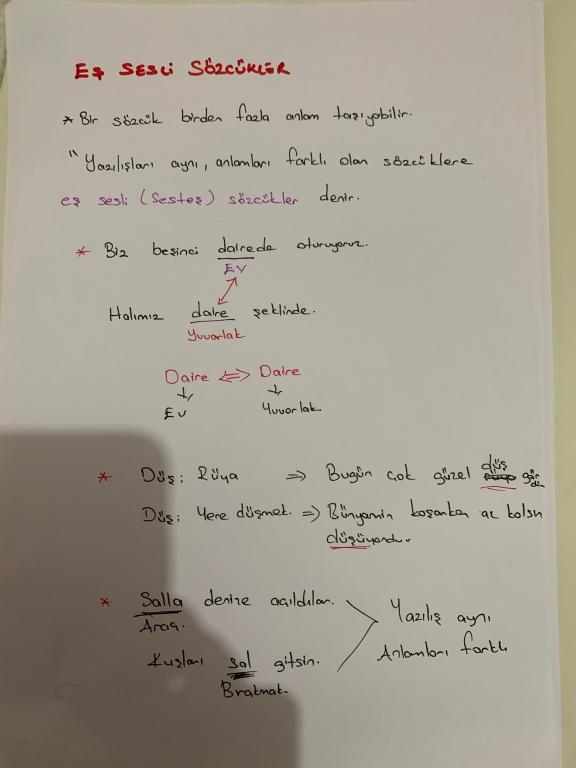 Eş SESLİ SÖZCÜKLER
* Bir sözcük birden fazla anlam taşıyabilir.
"Yazılışları aynı, anlamları farklı olan sözcüklere
eş sesli (Sesteş) sözcükler denir.
* Biz beşinci dairede oturuyoruz.
EV
Halımız daire şeklinde.
Yuvarlak
Daire ⇔ Daire
Ev Yuvarlak.
* Düş: Rüya ⇒ Bugün çok güzel düş
Düş: Yere düşmek. ⇒ Bünyamin koşarken az kalsın
düşüyordu.
* Salla denize açıldılar.
Araç.
Kuşları sal gitsin.
Bırakmak.
Yazılış aynı
Anlamları farklı